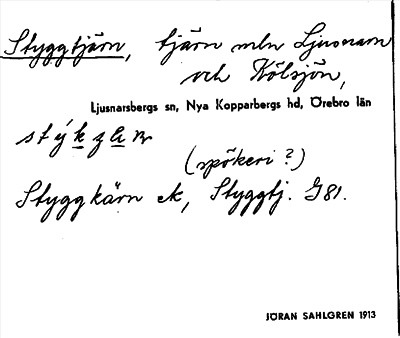 Styggtjärn, tjärn mln Ljusnaren
och Kölsjön,
Ljusnarsbergs sn, Nya Kopparbergs hd, Örebro län
(spökeri?)
Styggkärn ek, Styggtj. G81.
JÖRAN SAHLGREN 1913